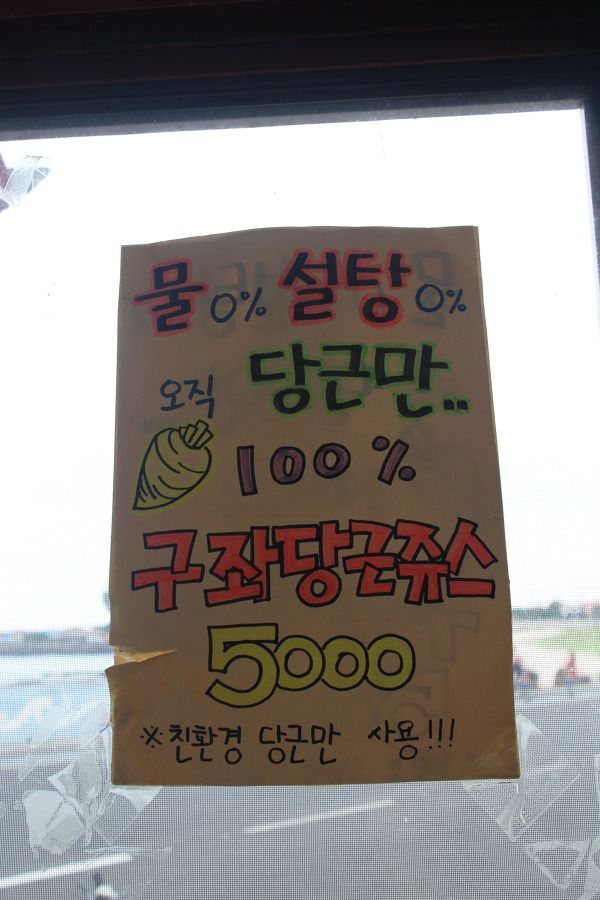 물 0% 설탕 0%
오직 당근만..
100%
구좌당근쥬스
5000
※친환경 당근만 사용!!!